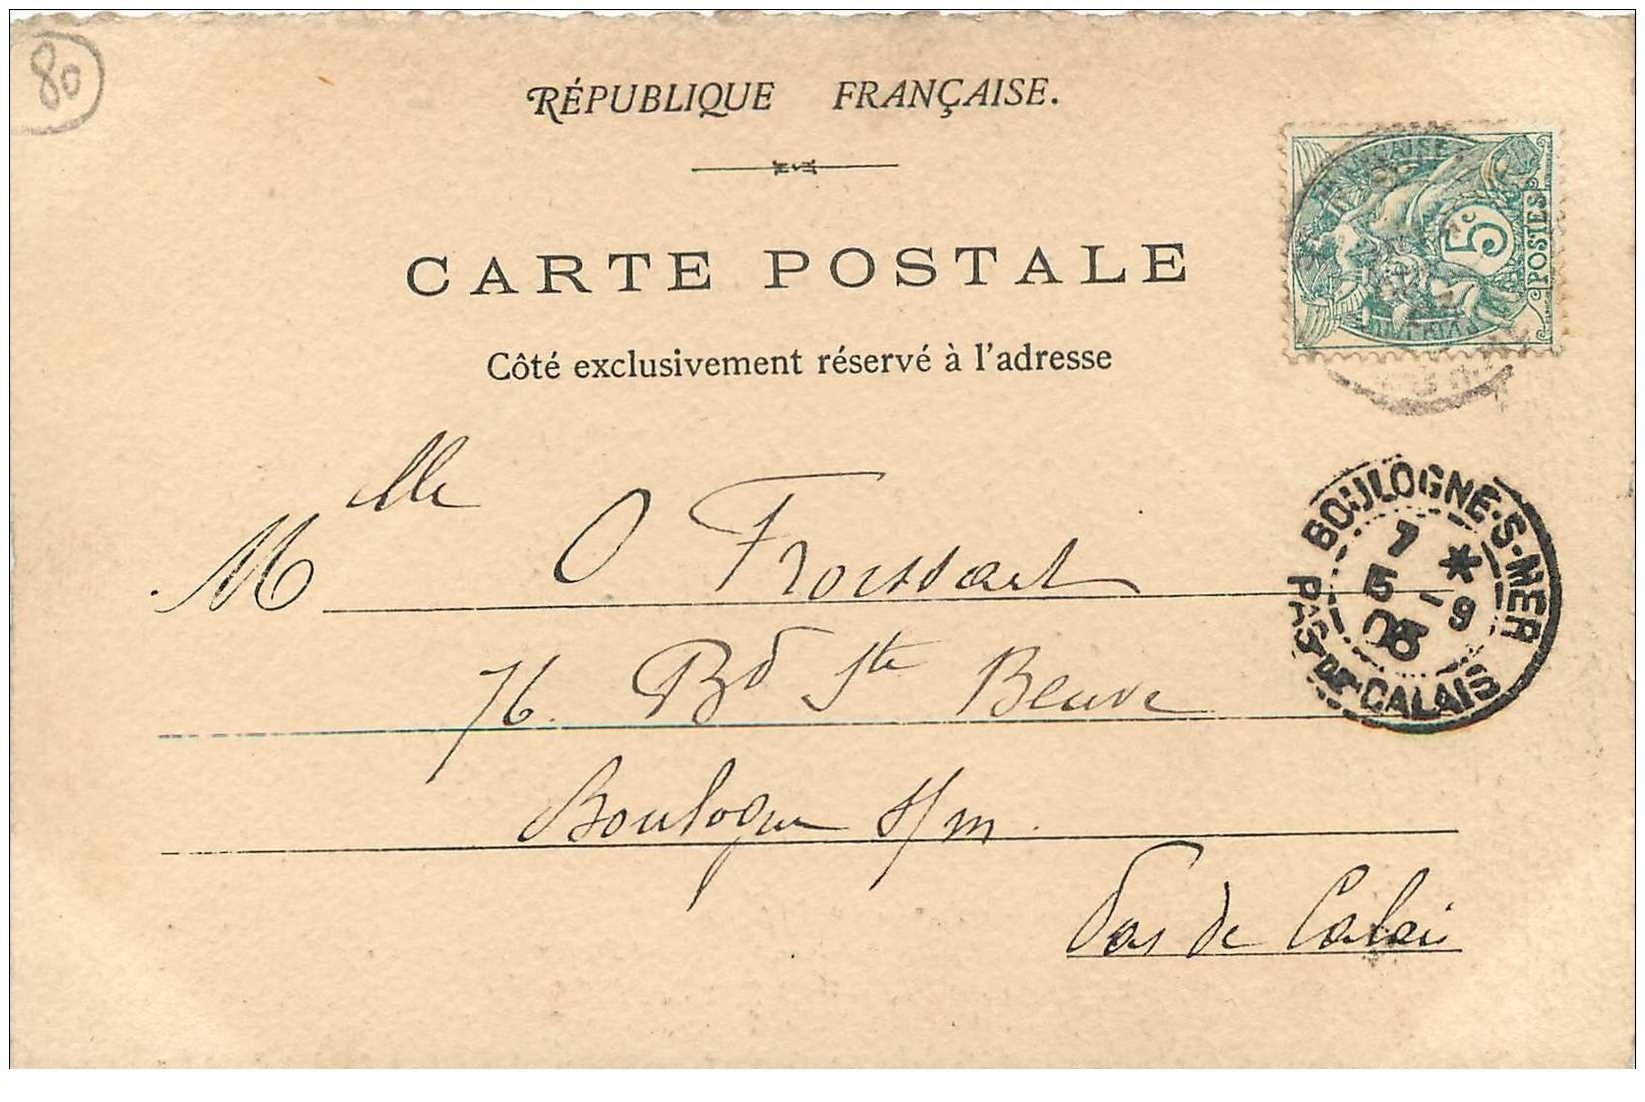 80
RÉPUBLIQUE FRANÇAISE.
5c
POSTES
CARTE POSTALE
Côté exclusivement réservé à l'adresse
BOULOGNE-S-MER
7 *
5 -9
03
PAS-DE-CALAIS
Mlle O Froissart
76 Bd Ste Beuve
Boulogne s/m
Pas de Calais